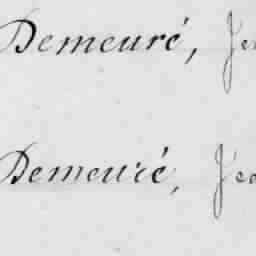 Demeuré,
Demeuré,